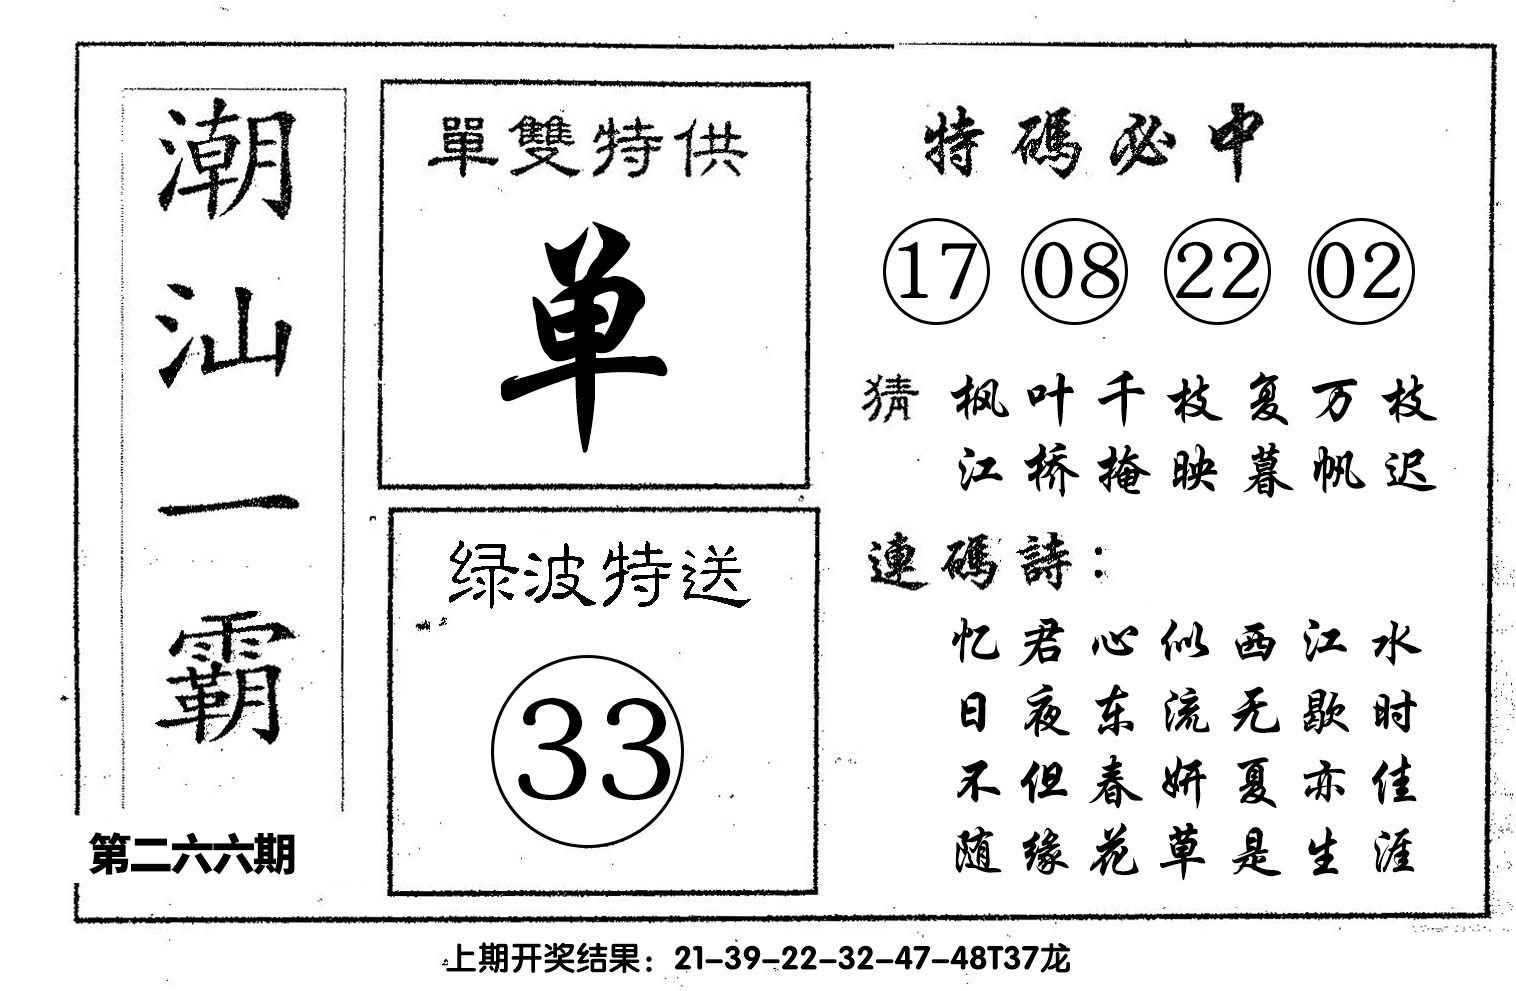 潮汕一霸
第二六六期
單雙特供
单
绿波特送
33
特碼必中
17 08 22 02
猜 枫叶千枝复万枝
江桥掩映暮帆迟
連碼詩：
忆君心似西江水
日夜东流无歇时
不但春妍夏亦佳
随缘花草是生涯
上期开奖结果：21-39-22-32-47-48T37龙